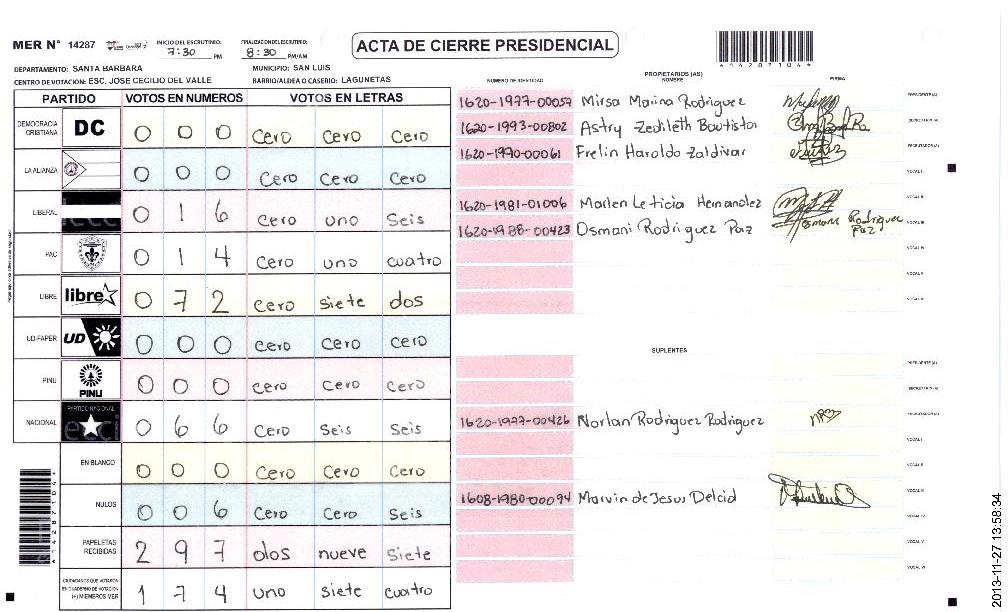 MER N° 14287
INICIO DEL ESCRUTINIO: 7:30 PM
FINALIZACION DEL ESCRUTINIO: 8:30 PM/AM
ACTA DE CIERRE PRESIDENCIAL
*14287104*
DEPARTAMENTO: SANTA BARBARA MUNICIPIO: SAN LUIS
CENTRO DE VOTACION: ESC. JOSE CECILIO DEL VALLE BARRIO/ALDEA O CASERIO: LAGUNETAS
PARTIDO VOTOS EN NUMEROS VOTOS EN LETRAS
DEMOCRACIA CRISTIANA DC 0 0 0 Cero Cero Cero
LA ALIANZA 0 0 0 Cero Cero Cero
LIBERAL 0 1 6 Cero uno Seis
PAC 0 1 4 Cero uno cuatro
LIBRE libre 0 7 2 Cero siete dos
UD-FAPER UD 0 0 0 Cero Cero Cero
PINU PINU 0 0 0 Cero Cero Cero
NACIONAL PARTIDO NACIONAL 0 6 6 Cero Seis Seis
EN BLANCO 0 0 0 Cero Cero Cero
NULOS 0 0 6 Cero Cero Seis
PAPELETAS RECIBIDAS 2 9 7 dos nueve siete
CIUDADANOS QUE VOTARON EN CUADERNO DE VOTACION (+) MIEMBROS MER 1 7 4 uno siete cuatro
*14287104*
PROPIETARIOS (AS)
NUMERO DE IDENTIDAD NOMBRE FIRMA
1620-1977-00057 Mirsa Marina Rodriguez PRESIDENTE(A)
1620-1993-00802 Astry Zedileth Bautista SECRETARIO(A)
1620-1970-00061 Frelin Haroldo Zaldivar ESCRUTADOR(A)
VOCAL I
1620-1981-01006 Marlen Leticia Hernandez VOCAL II
1620-1988-00423 Osmani Rodriguez Paz Osmani Rodriguez Paz VOCAL III
VOCAL IV
VOCAL V
VOCAL VI
SUPLENTES
PRESIDENTE(A)
SECRETARIO(A)
1620-1977-00426 Norlan Rodriguez Rodriguez ESCRUTADOR(A)
VOCAL I
VOCAL II
1608-1980-00094 Marvin de Jesus Delcid VOCAL III
VOCAL IV
VOCAL V
VOCAL VI
2013-11-27 13:58:34